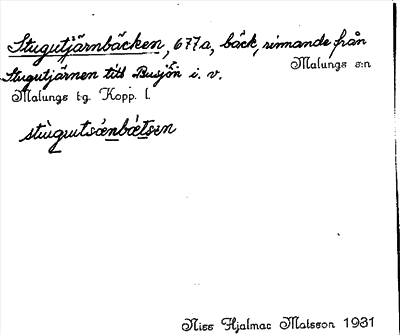 Stugutjärnbäcken, 677a, bäck, rinnande från
Stugutjärnen till Busjön i. v.
Malungs s:n
Malungs tg. Kopp. l.
Niss Hjalmar Matsson 1931